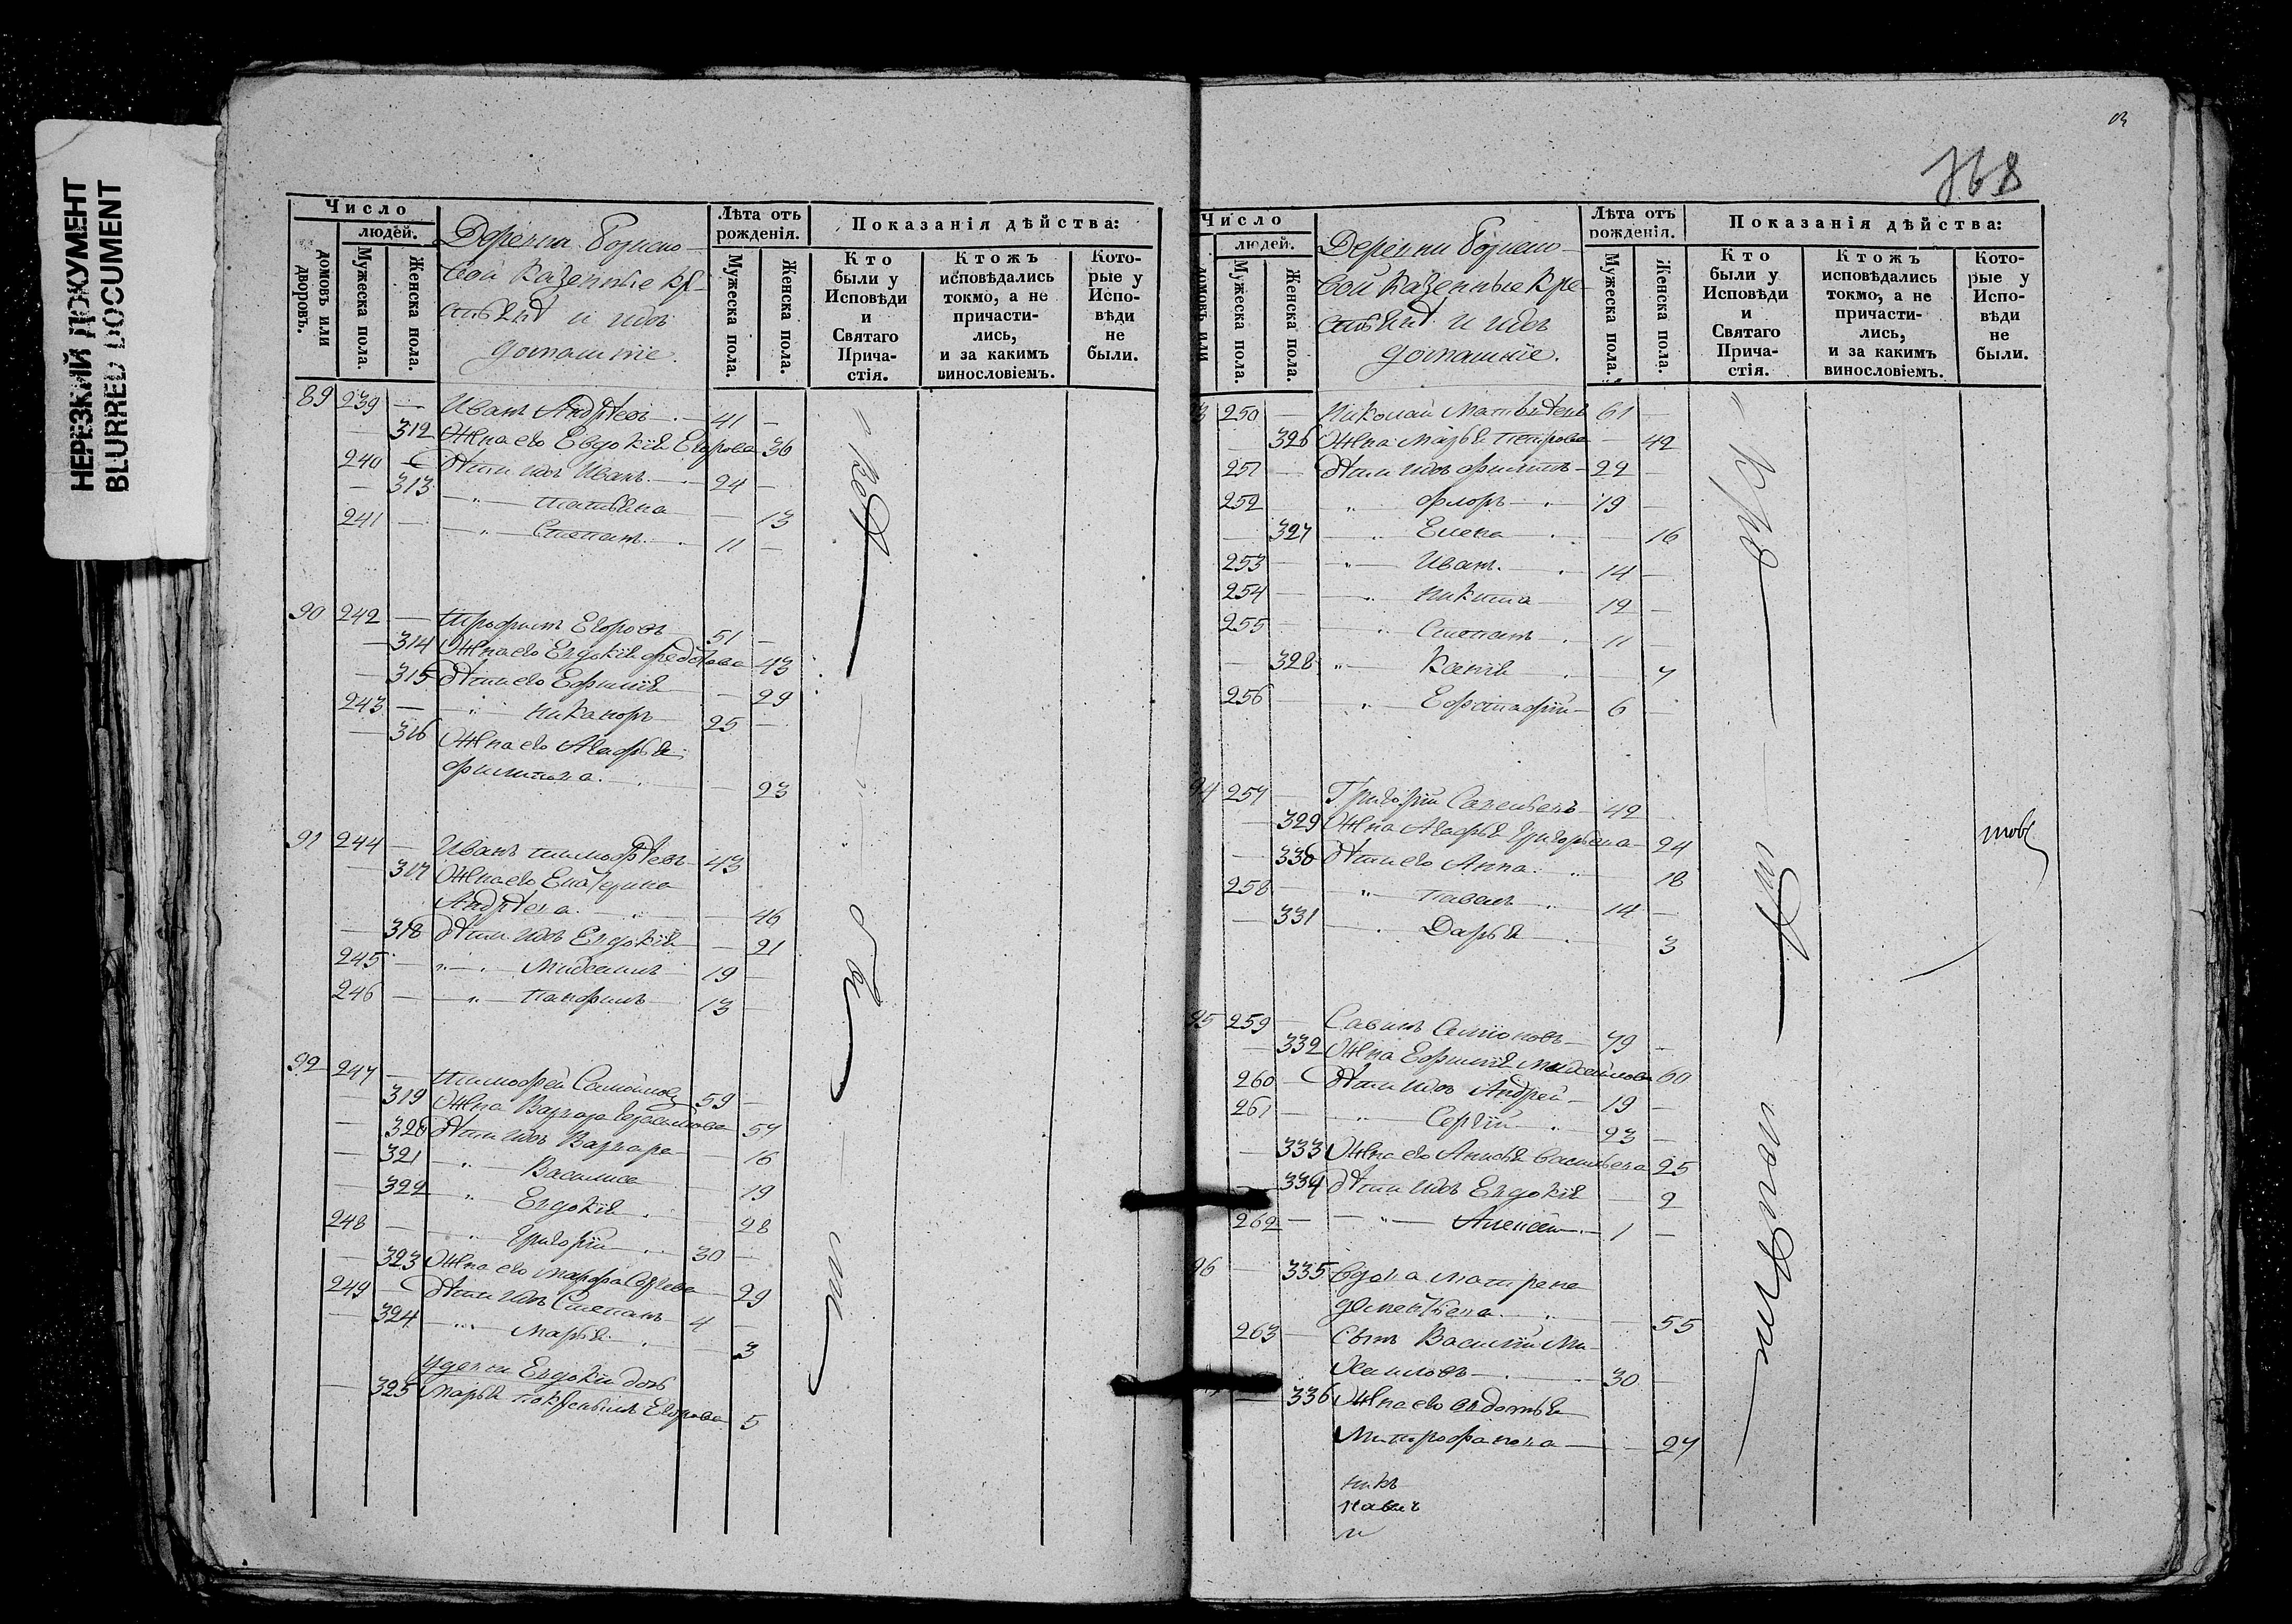 НЕРЕЗКИЙ ДОКУМЕНТ
BLURRED DOCUMENT
Число
людей.
домовъ или дворовъ.
Мужеска пола.
Женска пола.
Деревни
казенные кр-
естьяне и ихъ
домашніе.
Лѣта отъ рожденія.
Мужеска пола.
Женска пола.
Показанія дѣйства:
Кто были у Исповѣди и Святаго Прича-стія.
Ктожъ исповѣдались токмо, а не причасти-лись, и за какимъ винословіемъ.
Кото-рые у Испо-вѣди не были.
89 239 — Иванъ Андрѣевъ 41 —
— 312 Жена его Евдокія Егорова 36
240 — Дѣти ихъ Иванъ 24 —
— 313 " Татьяна — 13
241 — " Степанъ 11 —
90 242 — Трофимъ Егоровъ 51 —
— 314 Жена его Евдокія Федотова 43
— 315 Дѣти его Ефимія — 29
243 — " Никаноръ 25 —
— 316 Жена его Агафья
Филипова — 23
91 244 — Иванъ Тимофѣевъ 43
— 317 Жена его Екатерина
Андрѣева — 46
— 318 Дѣти ихъ Евдокія — 21
245 — " Михаилъ 19 —
246 — " Панфилъ 13 —
92 247 — Тимофей Самойловъ 59 —
— 319 Жена Варвара Герасимова 57
— 320 Дѣти ихъ Варвара — 16
— 321 " Василиса — 19
— 322 " Евдокія — 28
248 — " Григорій 30 —
— 323 Жена его Марфа 29
249 — Дѣти ихъ Степанъ 4 —
— 324 " Марья — 3
у девки Евдокіи дочь
— 325 Марья Егорова 5
768
Число
людей.
домовъ или
Мужеска пола.
Женска пола.
Деревни
казенные кре-
стьяне и ихъ
домашніе.
Лѣта отъ рожденія.
Мужеска пола.
Женска пола.
Показанія дѣйства:
Кто были у Исповѣди и Святаго Прича-стія.
Ктожъ исповѣдались токмо, а не причасти-лись, и за какимъ винословіемъ.
Кото-рые у Испо-вѣди не были.
3 250 — Николай Матвѣевъ 61 —
326 Жена Марья Петрова — 42
251 — Дѣти ихъ Филипъ 22 —
252 " Флоръ 19 —
— 327 " Елена — 16
253 — " Иванъ 14 —
254 — " Никита 12 —
255 — " Степанъ 11 —
— 328 " Ксенія — 7
256 — " Ефстафій 6 —
94 257 — Григорій Савельевъ 42
— 329 Жена Агафья Григорьева 24
— 330 Дѣти его Анна 18
258 — " Павелъ 14 —
— 331 Дарья 3
95 259 — Савинъ Семіоновъ 79 —
— 332 Жена Ефимія Михайлова 60
260 — Дѣти ихъ Андрей 19 —
261 — " Сергій 23 —
— 333 Жена его Анисья Васильева 25
— 334 Дѣти ихъ Евдокія — 2
262 — " Алексей 1 —
96 — 335 Вдова Матрена
Дементьева — 55
263 — Сынъ Василій Ми-
хаиловъ 30 —
— 336 Жена его Авдотья
Митрофанова — 27